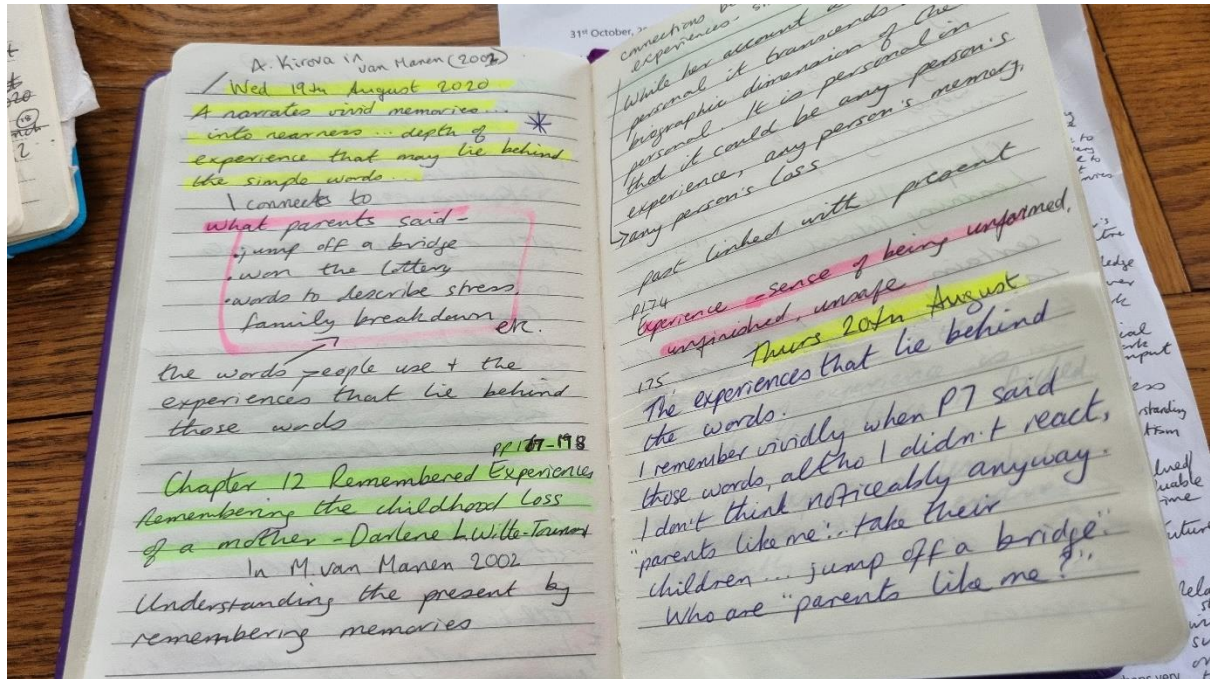 A. Kirova in van Manen (2002)
Wed 19th August 2020
A narrates vivid memories...
into nearness ... depth of
experience that may lie behind
the simple words...
I connects to
what parents said -
• jump off a bridge
• won the lottery
• words to describe stress
family breakdown
etc.
the words people use + the
experiences that lie behind
those words
Chapter 12 Remembered Experiences
Remembering the childhood Loss
of a mother - Darlene L Witte-
In M. van Manen 2002
Understanding the present by
remembering memories
31st October,
connections
experiences -
while her account
personal it transcends
biographic dimension of the
personal. It is personal in
that it could be any person's
experience, any person's memory,
any person's loss
past linked with present
p174
Experience - sense of being unformed,
unfinished, unsafe
Thurs 20th August
175
The experiences that lie behind
the words.
I remember vividly when P7 said
those words, altho I didn't react,
I don't think noticeably anyway.
"parents like me... take their
children ... jump off a bridge".
Who are "parents like me?"